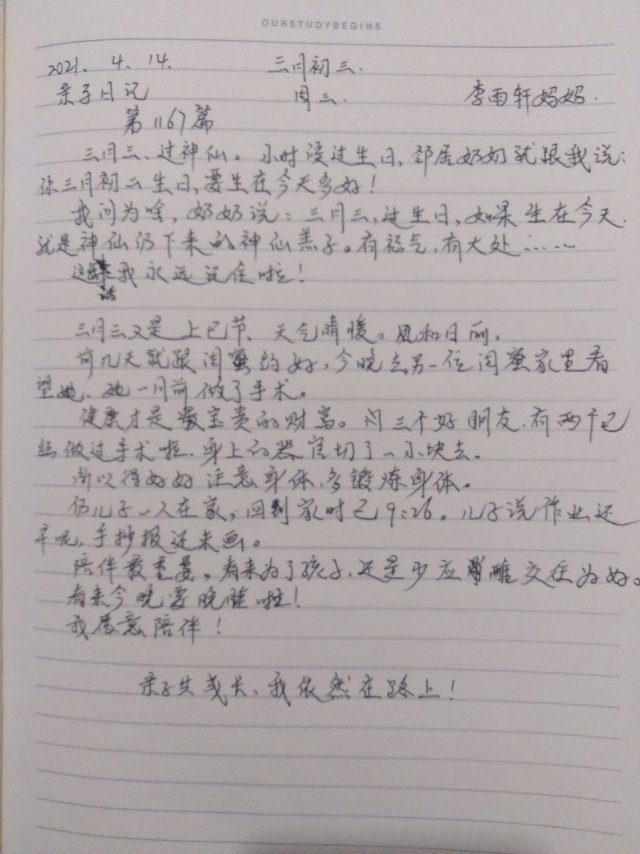 OURSTUDYBEGINS
2021. 4. 14. 三月初三.
亲子日记 周三. 李雨轩妈妈.
第1167篇
三月三、过神仙。小时没过生日,邻居奶奶就跟我说:
你三月初二生日,要生在今天多好!
我问为啥,奶奶说:三月三,过生日,如果生在今天.
就是神仙扔下来的神仙羔子。有福气,有大处……
这话我永远记住啦!
三月三又是上巳节、天气晴暖。风和日丽.
前几天就跟闺蜜约好,今晚去另一位闺蜜家里看
望她、她一月前做了手术。
健康才是最宝贵的财富。闪三个好朋友.有两个已
经做过手术啦.身上的器官切了一小块去。
所以得好好注意身体,多锻炼身体。
仍儿子一人在家,回到家时已9:26。儿子说作业还
早呢,手抄报还未画。
陪伴最重要。看来为了孩子,还是少应酬交往为好。
看来今晚要晚睡啦!
我愿意陪伴!
亲子共成长、我依然在路上!